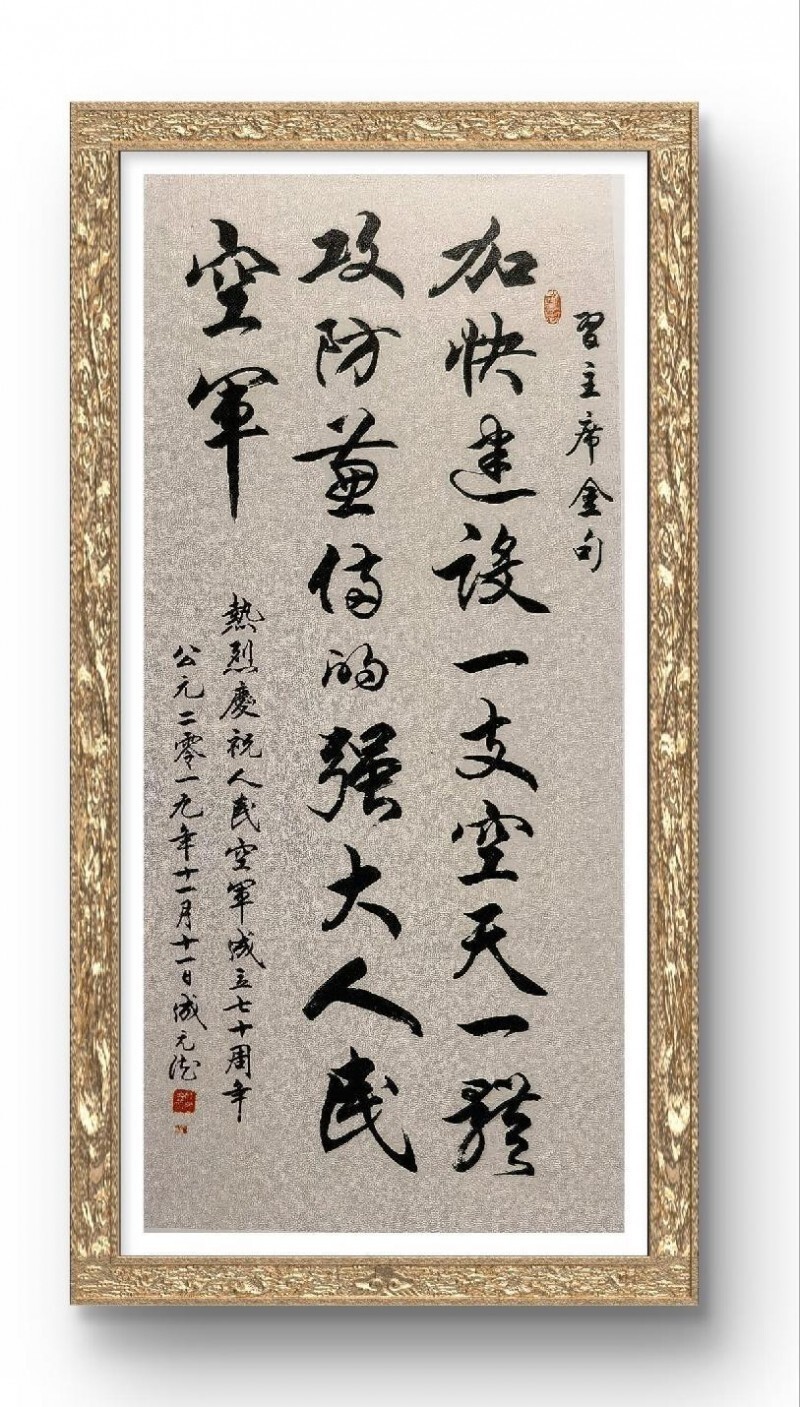 習主席金句
加快建設一支空天一體
攻防兼備的强大人民
空軍
熱烈慶祝人民空軍成立七十周年
公元二零一九年十一月十一日成元